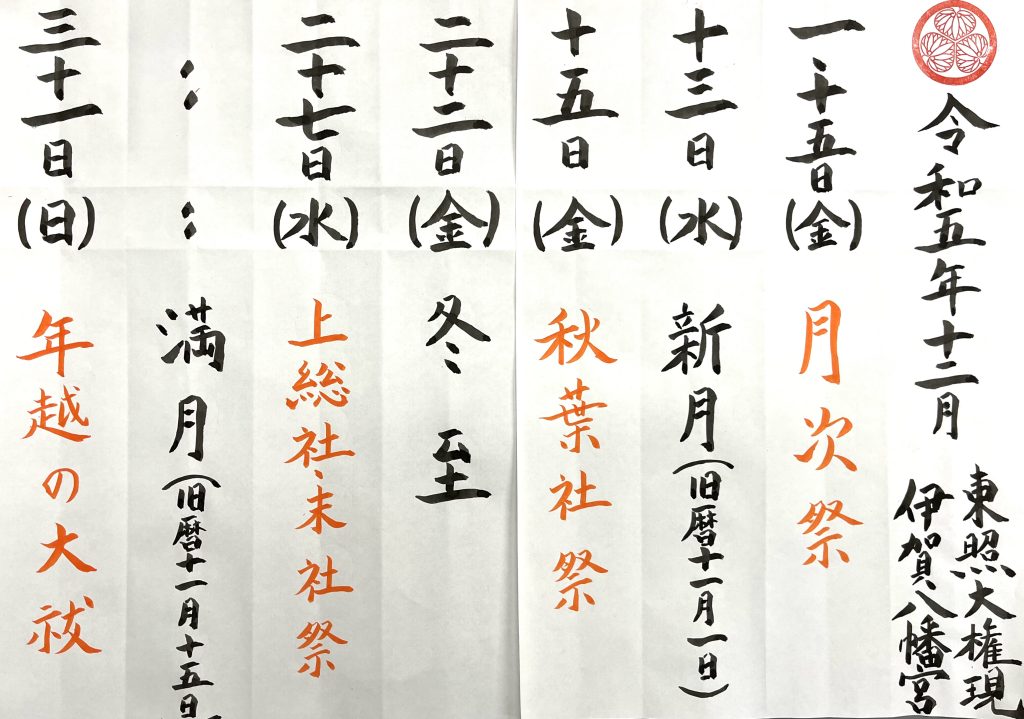 令和五年十二月
東照大権現
伊賀八幡宮
一、十五日(金) 月次祭
十三日(水) 新月(旧暦十一月一日)
十五日(金) 秋葉社祭
二十二日(金) 冬至
二十七日(水) 上総社、末社祭
〃 〃 満月(旧暦十一月十五日)
三十一日(日) 年越の大祓